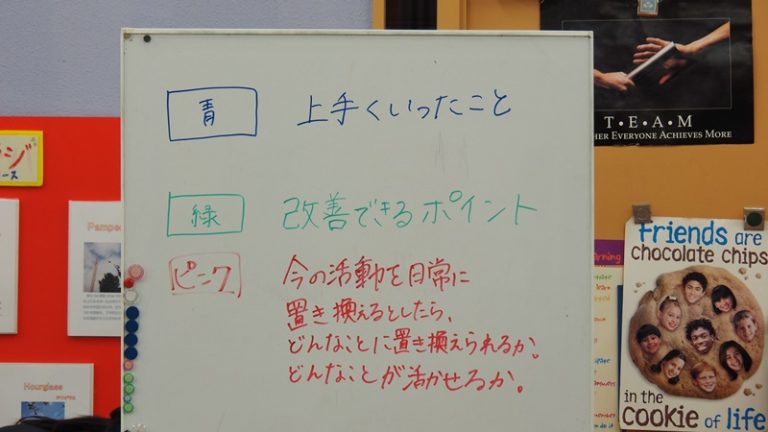 青 上手くいったこと
緑 改善できるポイント
ピンク 今の活動を日常に
置き換えるとしたら、
どんなことに置き換えられるか。
どんなことが活かせるか。
T•E•A•M
HER EVERYONE ACHIEVES MORE
friends are
chocolate chips
in the
COOKIE of life
Hourglass